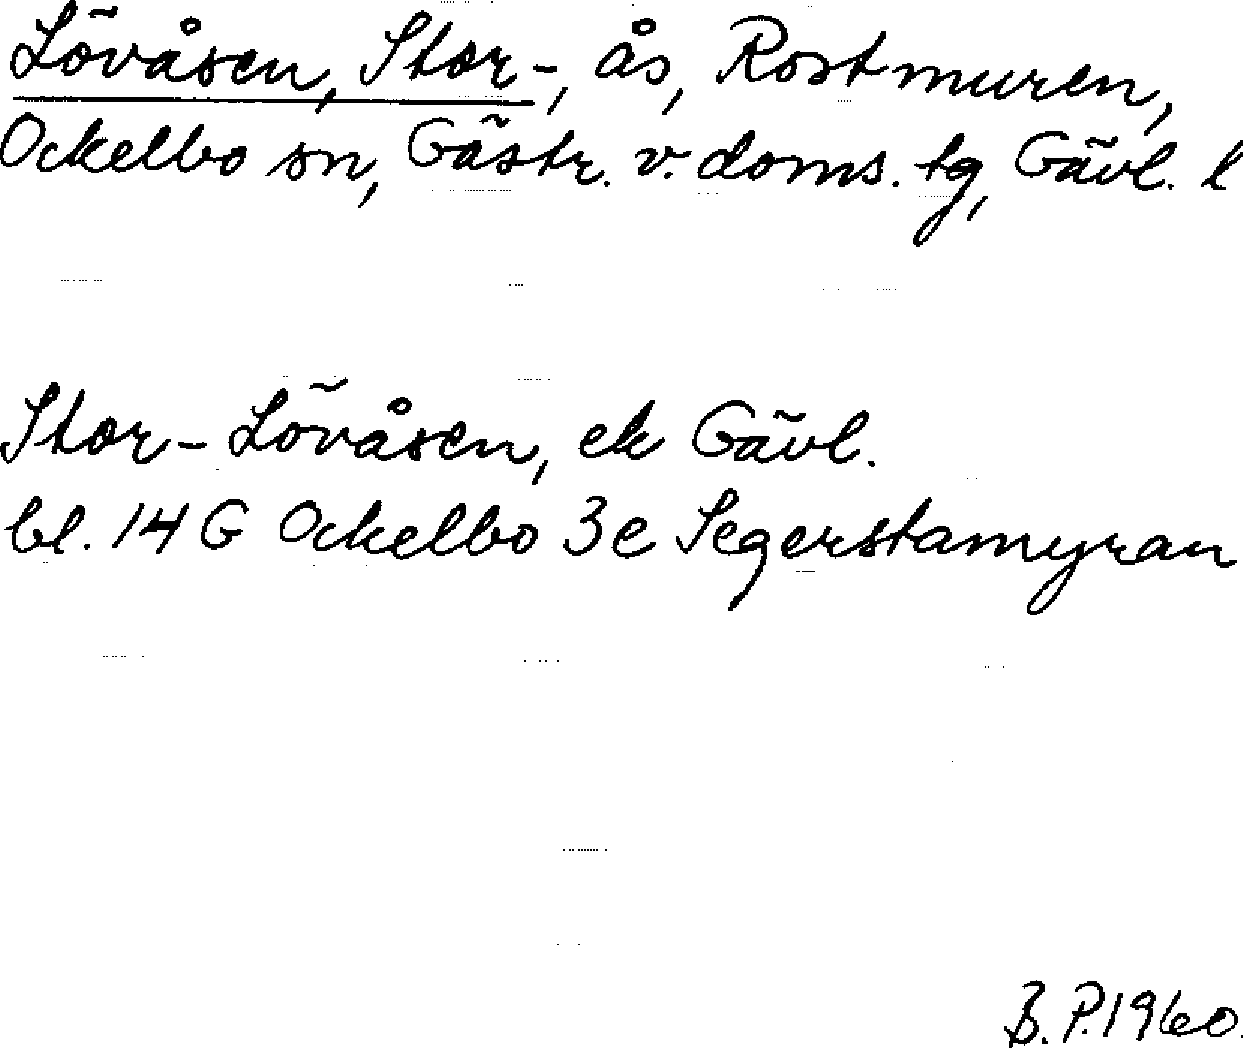 Lövåsen, Stor-, ås, Rostmuren,
Ockelbo sn, Gästr. v. doms. tg, Gävl. l
Stor-Lövåsen, ek Gävl.
bl. 14 G Ockelbo 3e Segerstamyran
B. P. 1960.